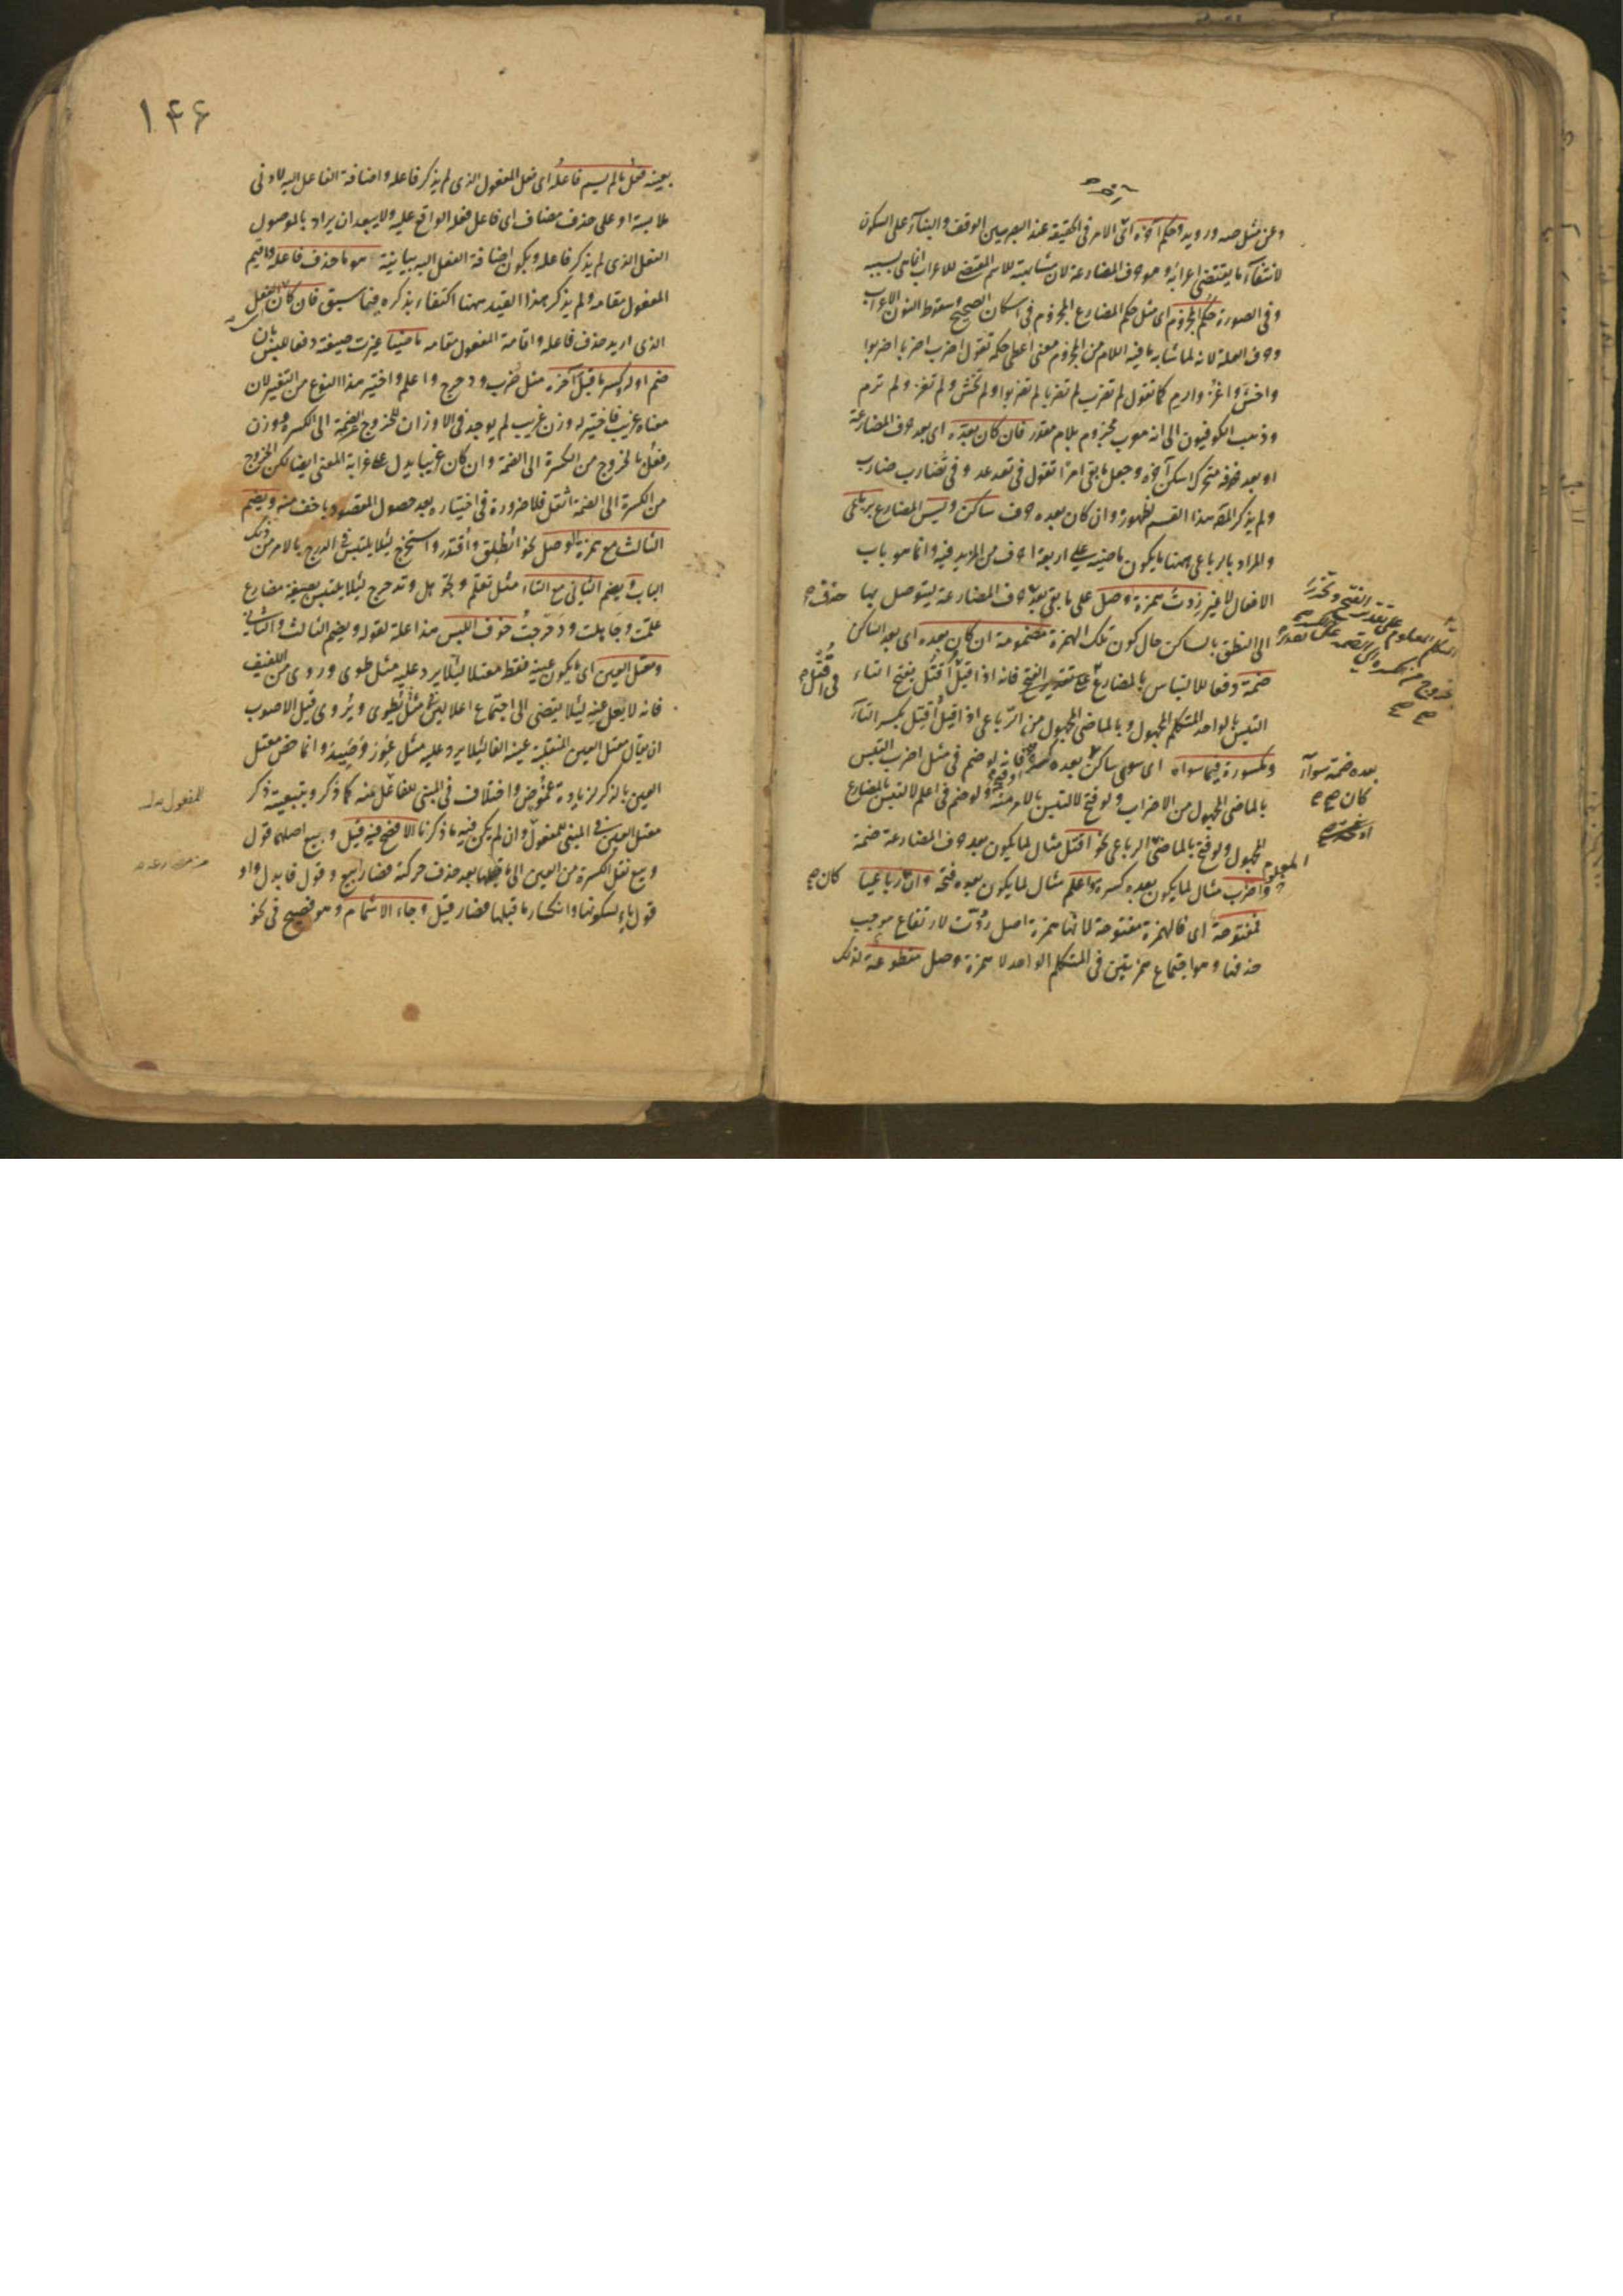 وعن مثل صه ورويد وحكم آخره اى الامر فى الحقيقة عند البصريين الوقف والبناء على السكون
لانتفاء ما يقتضى اعرابه وهو حرف المضارعة لان مشابهته للاسم المقتضى للاعراب انما هى بسببه
وفى الصورة حكم المجزوم اى مثل حكم المضارع المجزوم فى اسكان الصحيح وسقوط النون الاعراب
وحرف العلة لانه لما شابه ما فيه اللام من المجزوم معنى اعطى حكمه تقول اضرب اضربا اضربوا
واخش واغز وارم كما تقول لم تضرب لم تضربا لم تضربوا ولم تخش ولم تغز ولم ترم
وذهب الكوفيون الى انه معرب مجزوم بلام مقدر فان كان بعده اى بعد حرف المضارعة
او بعد حذفه متحرك اسكن آخره وجعل ما بقى امرا تقول فى تعد عد وفى تضارب ضارب
ولم يذكر المص هذا القسم لظهوره وان كان بعده حرف ساكن وليس المضارع برباعى
والمراد بالرباعى ههنا ما يكون ماضيه على اربعة احرف من المزيد فيه وانما هو باب
الافعال لا غير زدت همزة وصل على ما بقى بعد حرف المضارعة ليتوصل بها
حذف
الى النطق بالساكن حال كون تلك الهمزة مضمومة ان كان بعده اى بعد الساكن
ضمة دفعا للالتباس بالمضارع على تقدير الفتح فانه اذا قيل اقتل بفتح التاء
التبس بالواحد المتكلم المجهول وبالماضى المجهول من الرباعى اذا قيل اقتل بكسر التاء
ومكسورة فيما سواه اى سوى ساكن بعده ضمة فانه لو ضم فى مثل اضرب التبس
بالماضى المجهول من الاضراب ولو فتح لالتبس بالامر منه ولو ضم فى اعلم لالتبس بالمضارع
المجهول ولو فتح بالماضى الرباعى نحو اقتل مثال لما يكون بعد حرف المضارعة ضمة
واضرب مثال لما يكون بعده كسرة واعلم مثال لما يكون بعده فتحة وان رباعيا
كان
فمفتوحة اى فالهمزة مفتوحة لانها همزة اصل ردت لارتفاع موجب
حذفها وهو اجتماع همزتين فى المتكلم الواحد لا همزة وصل مقطوعة لذلك
بعده ضمة سواء
كان
١٤۶
بعينه فعل ما لم يسم فاعله اى فعل المفعول الذى لم يذكر فاعله واضافة الفاعل اليه لادنى
ملابسة او على حذف مضاف اى فاعل فعله الواقع عليه ولا يبعد ان يراد بالموصول
الفعل الذى لم يذكر فاعله ويكون اضافة الفعل اليه بيانية هو ما حذف فاعله واقيم
المفعول مقامه ولم يذكر هذا القيد ههنا اكتفاء بذكره فيما سبق فان كان الفعل
الذى اريد حذف فاعله واقامة المفعول مقامه ماضيا غيرت صيغته دفعا للبس بان
ضم اوله وكسر ما قبل آخره مثل ضرب ودحرج واعلم واختير هذا النوع من التغيير لان
معناه غريب فاختير له وزن غريب لم يوجد فى الاوزان للخروج من الضمة الى الكسرة ووزن
فعل بالخروج من الكسرة الى الضمة وان كان غريبا يدل على غرابة المعنى ايضا لكن الخروج
من الكسرة الى الضمة اثقل فلا ضرورة فى اختياره بعد حصول المقصود باخف منه ويضم
الثالث مع همزة الوصل نحو انطلق واقتدر واستخرج لئلا يلتبس فى الدرج بالامر من ذلك
الباب ويضم الثانى مع التاء مثل تعلم وتجوهل وتدحرج لئلا يلتبس بصيغة مضارع
علمت وجاهلت ودحرجت خوف اللبس هذا علة لقوله ويضم الثالث والثانى
ومعتل العين اى ما يكون عينه فقط معتلا لئلا يرد عليه مثل طوى وروى من اللفيف
فانه لا يعل عينه لئلا يفضى الى اجتماع اعلالين فى مثل يطوى ويروى قيل الاصوب
ان يقال معتل العين المنقلبة عينه الفا لئلا يرد عليه مثل عور وصيد وانما خص معتل
العين بالذكر لزيادة غموض واختلاف فى المبنى للفاعل منه كما ذكر وبتبعيته ذكر
معتل العين فى المبنى للمفعول وان لم يكن فيه ما ذكرنا الافصح فيه قيل وبيع اصلهما قول
وبيع نقل الكسرة من العين الى ما قبلها بعد حذف حركته فصار بيع وقول فابدل واو
قول ياء لسكونها وانكسار ما قبلها فصار قيل وجاء الاشمام وهو فصيح فى نحو